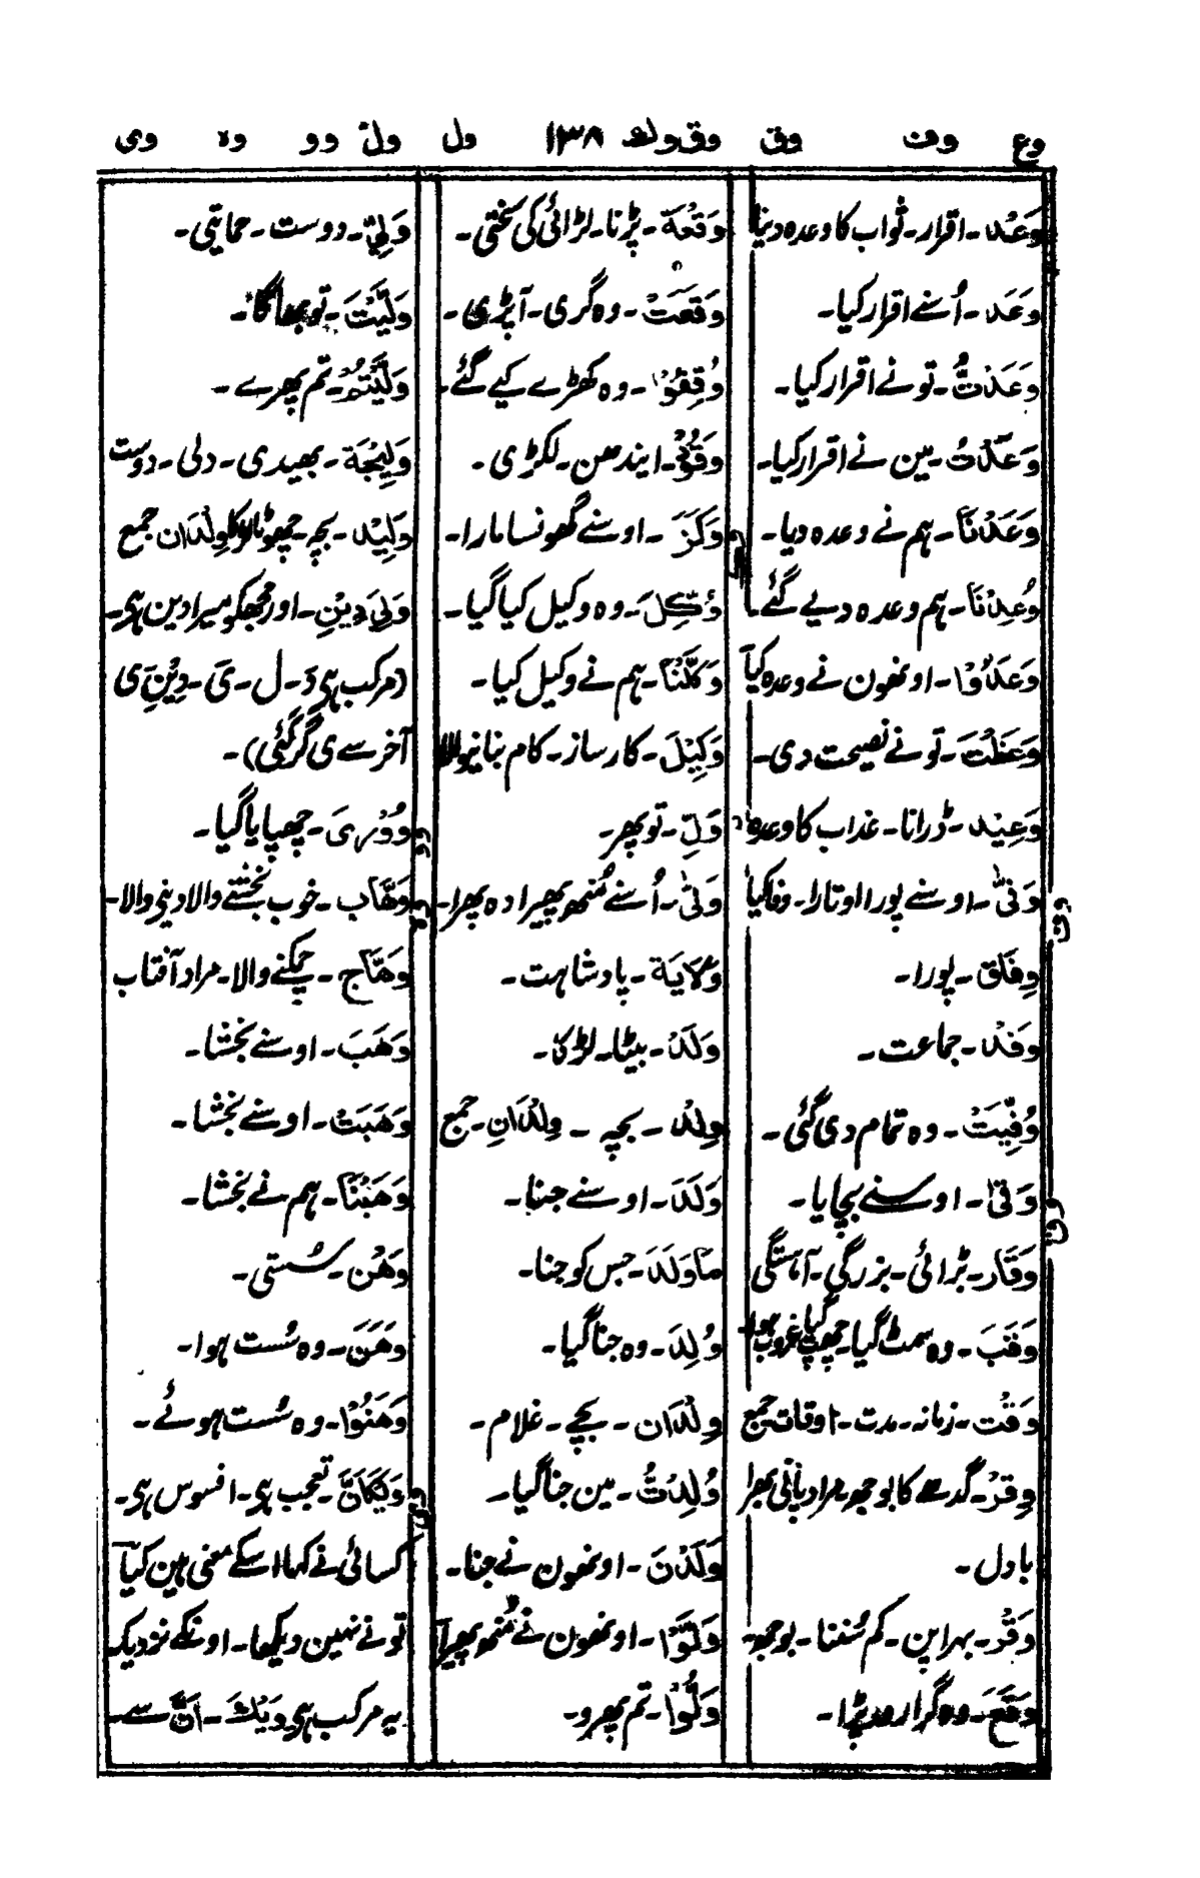 وع وف وق وق ولھ ۱۳۸ ول ولّ وو وہ وی
وَعْد۔ اقرار۔ ثواب کا وعدہ دینا
وَعَدَ۔ اُسنے اقرار کیا۔
وَعَدْتَّ۔ تو نے اقرار کیا۔
وَعَدْتُّ۔ مین نے اقرار کیا۔
وَعَدْنَا۔ ہم نے وعدہ دیا۔
وُعِدْنَا۔ ہم وعدہ دیے گئے۔
وَعَدُوْا۔ اونھون نے وعدہ کیا
وَعَظْتَ۔ تو نے نصیحت دی۔
وَعِیْد۔ ڈرانا۔ عذاب کا وعدہ
وَفّٰی۔ اوسنے پورا اوتارا۔ وفا کیا
وِفَاق۔ پورا۔
وَفْد۔ جماعت۔
وُفِّیَتْ۔ وہ تمام دی گئی۔
وَقٰی۔ اوسنے بچایا۔
وَقَار۔ بڑائی۔ بزرگی۔ آہستگی
وَقَبَ۔ وہ سمٹ گیا۔ چھپ گیا غروب ہوا۔
وَقْت۔ زمانہ۔ مدت۔ اوقات جمع
وِقْر۔ گدھے کا بوجھ۔ مراد پانی بھرا
بادل۔
وَقْر۔ بہراپن۔ کم سُننا۔ بوجھ۔
وَقَعَ۔ وہ گرا۔
وف
وق
وَقْعَة۔ پڑنا۔ لڑائی کی سختی۔
وَقَعَتْ۔ وہ گری۔ آپڑی۔
وُقِفُوْا۔ وہ کھڑے کیے گئے۔
وَقُوْد۔ ایندھن۔ لکڑی۔
وَکَزَ۔ اوسنے گھونسا مارا۔
وُکِّلَ۔ وہ وکیل کیا گیا۔
وَکَّلْنَا۔ ہم نے وکیل کیا۔
وَکِیْلَ۔ کارساز۔ کام بنانیوالا
وَلِّ۔ تو پھر۔
وَلّٰی۔ اُسنے مُنھ پھیرا وہ پھرا۔
وَلَایَة۔ پادشاہت۔
وَلَدْ۔ بیٹا۔ لڑکا۔
وِلْدْ۔ بچہ۔ وِلْدَانِ۔ جمع
وَلَدَ۔ اوسنے جنا۔
مَا وَلَدَ۔ جس کو جنا۔
وُلِدَ۔ وہ جنا گیا۔
وِلْدَان۔ بچے۔ غلام۔
وُلِدْتُّ۔ مین جنا گیا۔
وَلَدْنَ۔ اونھون نے جنا۔
وَلَّوْا۔ اونھون نے مُنھ پھیرا
وَلُّوْا۔ تم پھرو۔
وَلِیّ۔ دوست۔ حمایتی۔
وَلَّیْتَ۔ تو بھاگا۔
وَلَّیْتُمْ۔ تم پھرے۔
وَلِیْجَة۔ بھیدی۔ دلی۔ دوست
وَلِیْد۔ بچہ۔ چھوٹا لڑکا وِلْدَان جمع
وَلِیَ دِیْنِ۔ اور مجھکو میرا دین ہی۔
(مرکب ہی وَ۔ ل۔ یَ۔ دِیْنِیْ ی
آخر سے ی گر گئی)۔
وُوْرِیَ۔ چھپایا گیا۔
وَھَّاب۔ خوب بخشنے والا دینے والا۔
وَھَّاج۔ چمکنے والا۔ مراد آفتاب
وَھَبَ۔ اوسنے بخشا۔
وَھَبَتْ۔ اوسنے بخشا۔
وَھَبْنَا۔ ہم نے بخشا۔
وَھْن۔ سُستی۔
وَھَنَ۔ وہ سُست ہوا۔
وَھَنُوْا۔ وہ سُست ہوئے۔
وَیْکَاَنَّ۔ تعجب ہی۔ افسوس ہی۔
کسائی نے کہا اسکے معنی ہین کیا
تو نے نہین دیکھا۔ اونکے نزدیک
یہ مرکب ہی وَیْكَ۔ اَنَّ سے۔